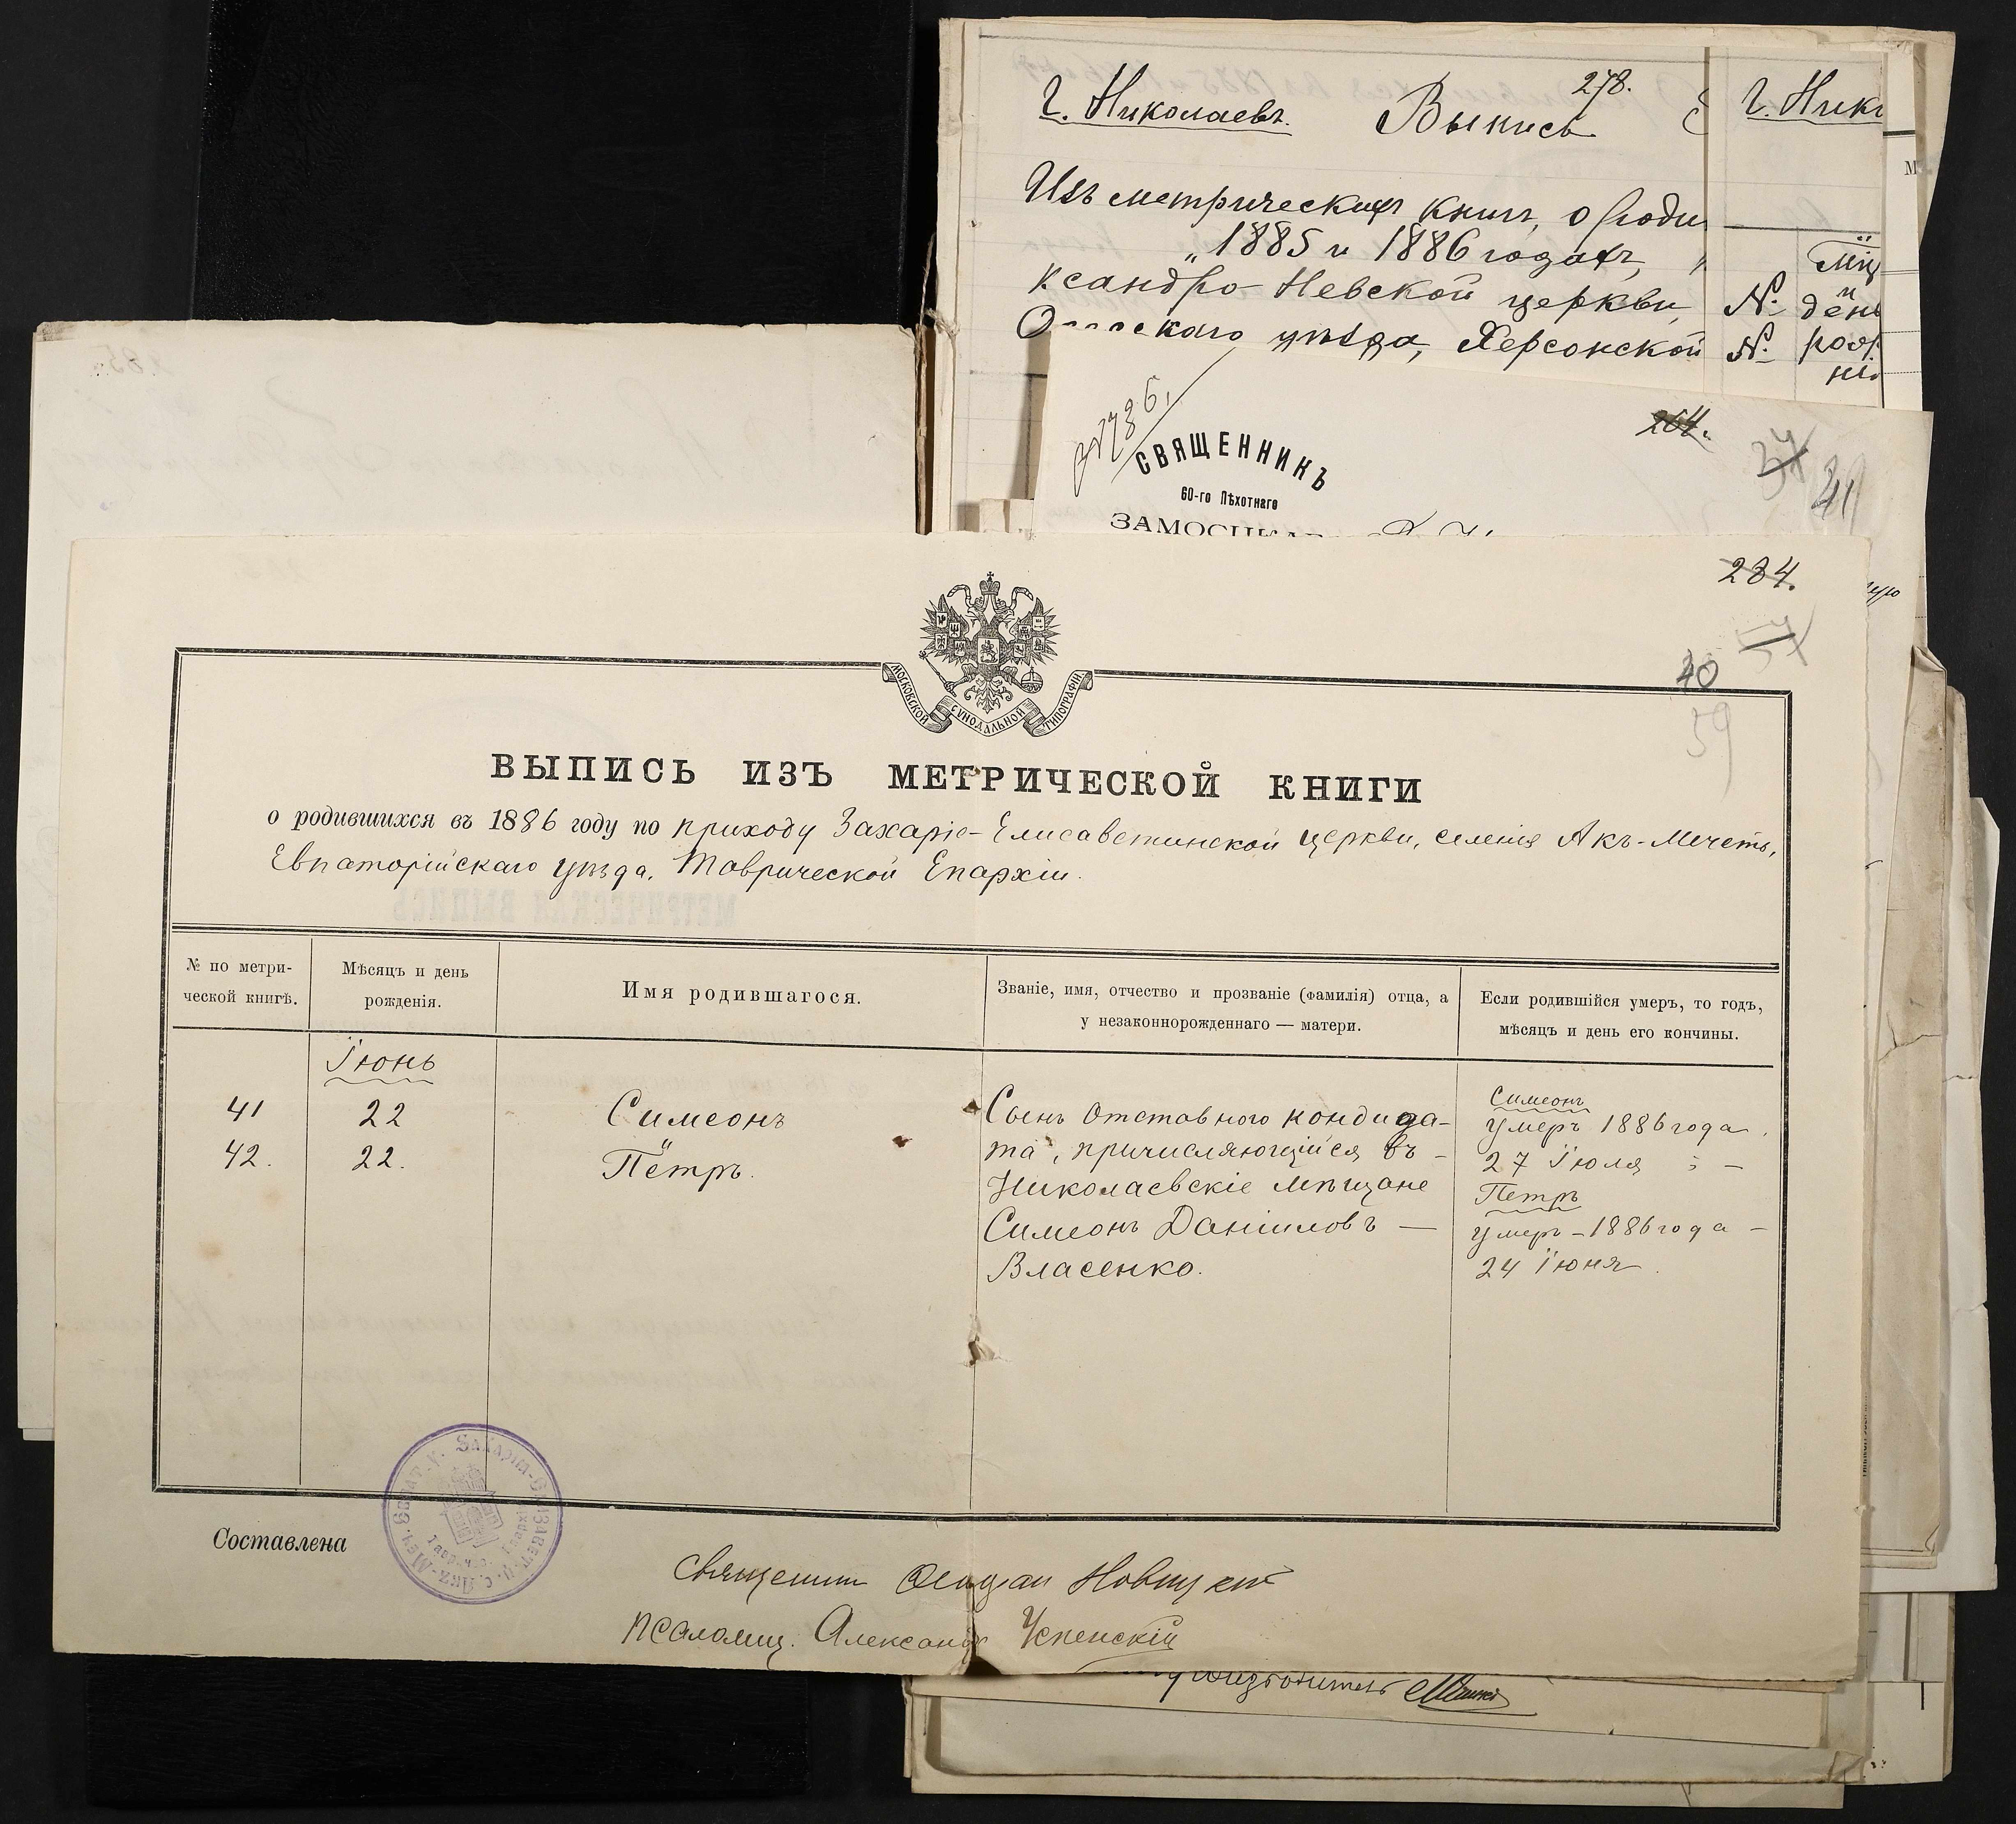 278.
г. Николаевъ. Выпись г. Нико
Изъ метрическихъ книгъ, о роди
„1885 и 1886 годахъ,
ксандро-Невской церкви,
уѣзда, Херсонской
№
№
день
М
204.
37
41
СВЯЩЕННИКЪ
60-го Пѣхотнаго
284.
57
40
39
МОСКОВСКОЙ СѴНОДАЛЬНОЙ ТИПОГРАФІИ
ВЫПИСЬ ИЗЪ МЕТРИЧЕСКОЙ КНИГИ
о родившихся въ 1886 году по приходу Захаріе-Елисаветинской церкви, селенія Акъ-Мечеть,
Евпаторійскаго уѣзда, Таврической Епархіи.
№ по метри-
ческой книгѣ.
Мѣсяцъ и день
рожденія.
Имя родившагося.
Званіе, имя, отчество и прозваніе (фамилія) отца, а
у незаконнорожденнаго — матери.
Если родившійся умеръ, то годъ,
мѣсяцъ и день его кончины.
Іюнь
41 22 Симеонъ
42. 22. Петръ.
Сынъ отставного кондида-
та, причисляющійся въ -
Николаевскіе мѣщане
Симеонъ Даніиловъ —
Власенко.
Симеонъ
умеръ 1886 года.
27 Іюля
Петръ
умеръ - 1886 года -
24 Іюня.
Составлена
Священникъ Новицкій
Псаломщ. Александръ Успенскій